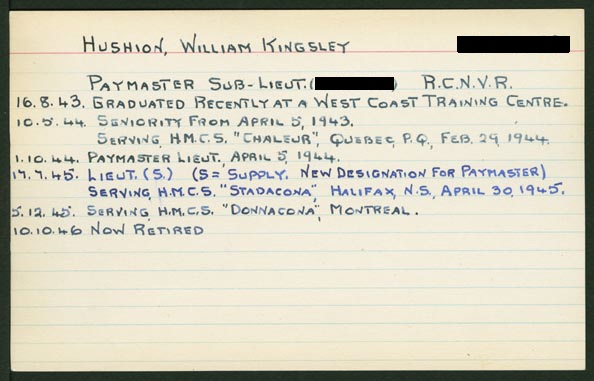 HUSHION, WILLIAM KINGSLEY
PAYMASTER SUB-LIEUT. ( ) R.C.N.V.R.
16.8.43. GRADUATED RECENTLY AT A WEST COAST TRAINING CENTRE.
10.5.44. SENIORITY FROM APRIL 5, 1943.
SERVING, H.M.C.S. "CHALEUR", QUEBEC, P.Q., FEB. 29, 1944.
1.10.44. PAYMASTER LIEUT., APRIL 5, 1944.
17.7.45. LIEUT. (S.) (S = SUPPLY. NEW DESIGNATION FOR PAYMASTER)
SERVING, H.M.C.S. "STADACONA", HALIFAX, N.S., APRIL 30, 1945.
5.12.45. SERVING, H.M.C.S. "DONNACONA", MONTREAL.
10.10.46 NOW RETIRED